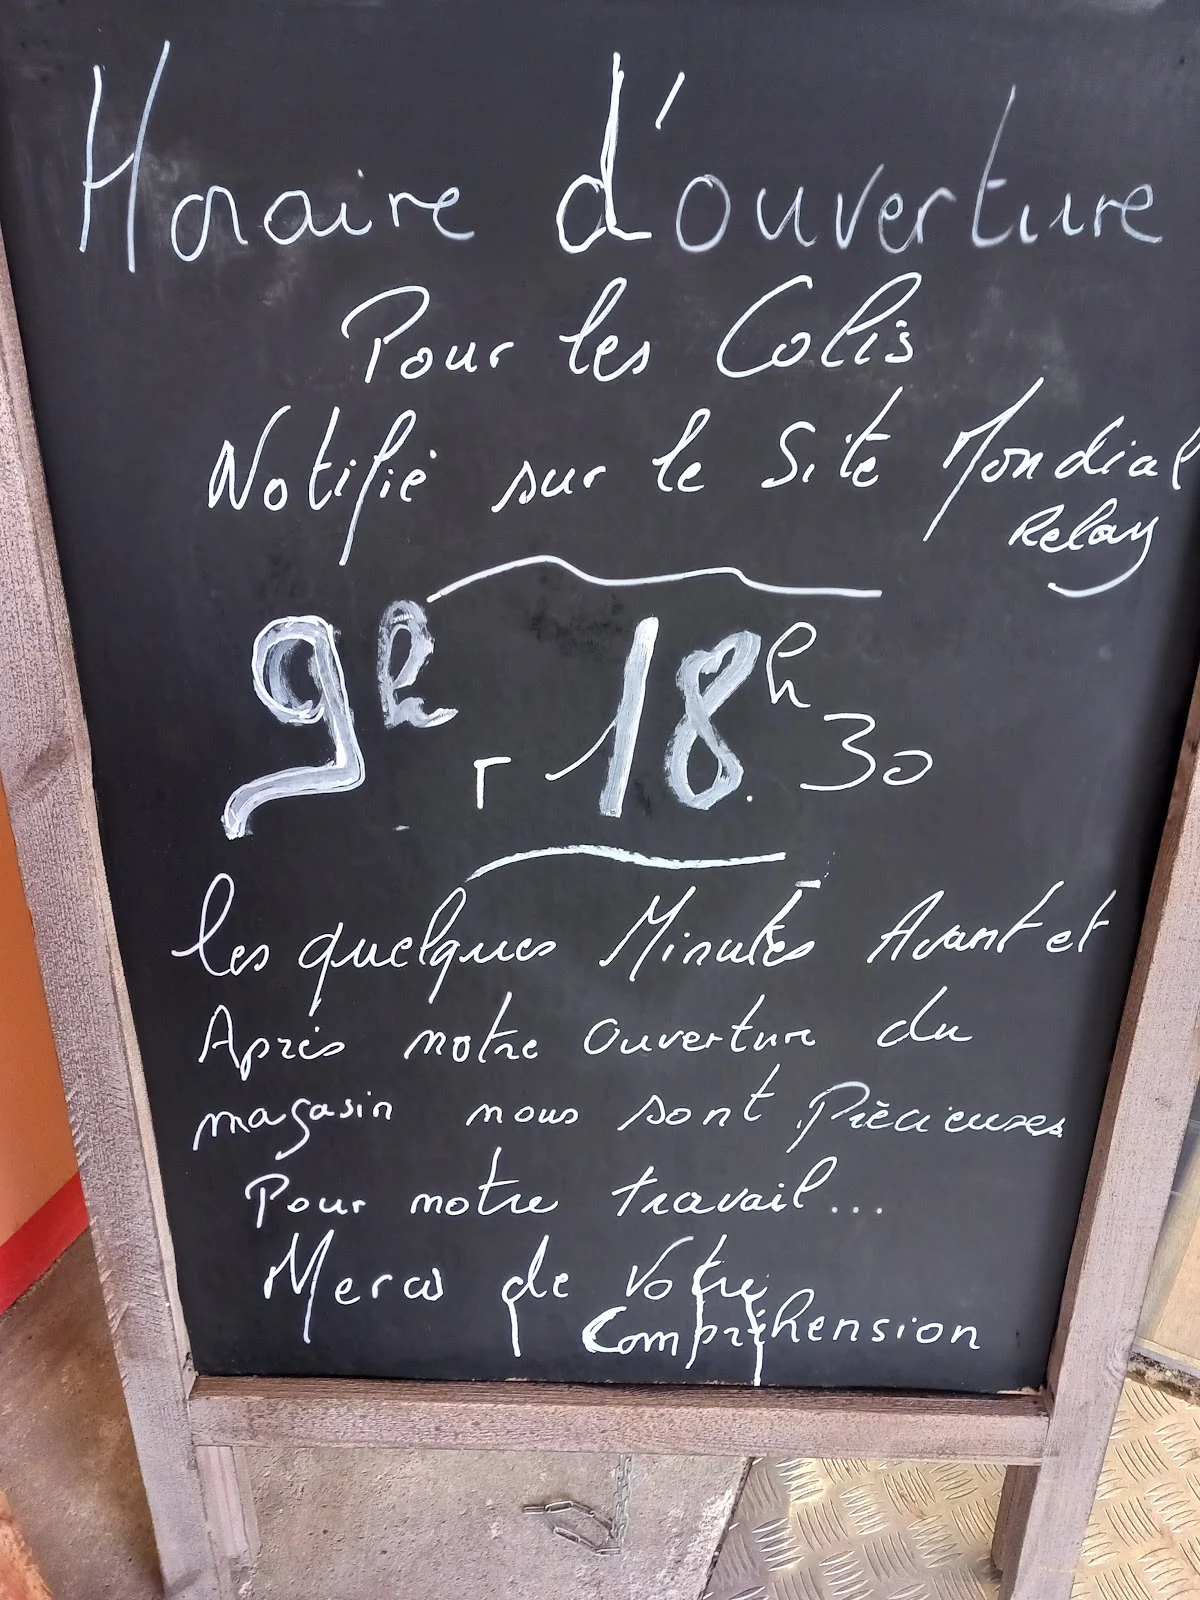 Horaire d'ouverture
Pour les Colis
Notifié sur le Site Mondial
Relay
9h - 18h30
les quelques Minutes Avant et
Après notre ouverture du
magasin nous sont Précieuses
Pour notre travail...
Merci de Votre
Compréhension